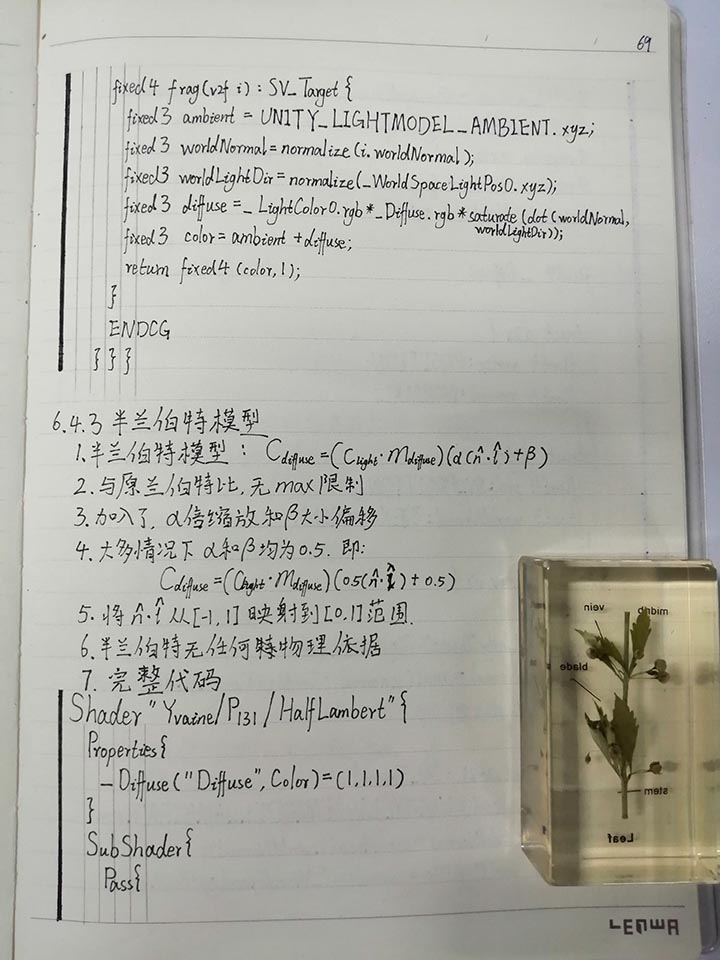 69
fixed4 frag(v2f i) : SV_Target{
fixed3 ambient = UNITY_LIGHTMODEL_AMBIENT.xyz;
fixed3 worldNormal = normalize(i.worldNormal);
fixed3 worldLightDir = normalize(_WorldSpaceLightPos0.xyz);
fixed3 diffuse = _LightColor0.rgb * _Diffuse.rgb * saturade(dot(worldNormal,
worldLightDir));
fixed3 color = ambient + diffuse;
return fixed4(color,1);
}
ENDCG
} } }
6.4.3 半兰伯特模型
1. 半兰伯特模型: Cdiffuse = (Clight · mdiffuse)(α(n̂·l̂)+β)
2. 与原兰伯特比,无max限制
3. 加入了 α倍缩放和β大小偏移
4. 大多情况下 α和β均为0.5. 即:
Cdiffuse = (Clight · mdiffuse)(0.5(n̂·l̂)+0.5)
5. 将 n̂·l̂ 从[-1,1]映射到[0,1]范围.
6. 半兰伯特无任何物理依据
7. 完整代码
Shader "Yvaine/P131/HalfLambert"{
Properties{
_Diffuse("Diffuse",Color)=(1,1,1,1)
}
SubShader{
Pass{
vein
midrib
blade
stem
Leaf
LENWA